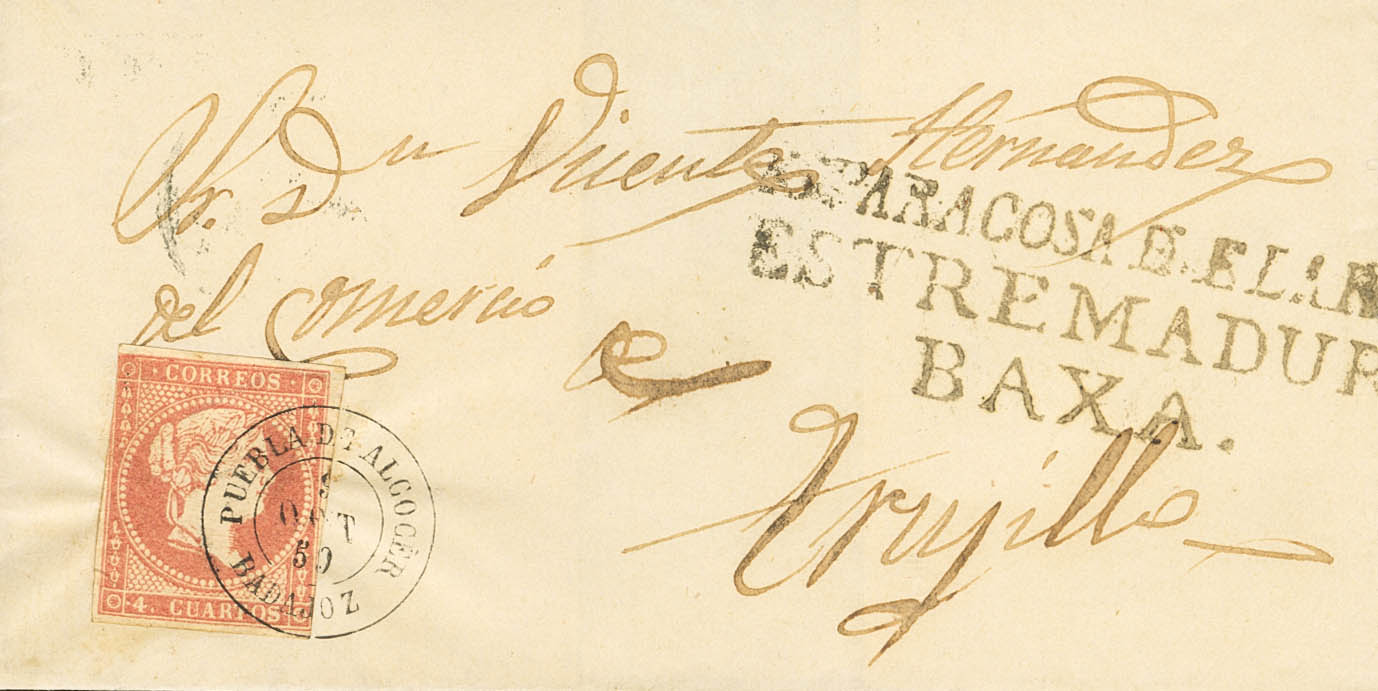 Sr. Dn Vicente Hernandez
ESTREMADUR
BAXA.
del Comercio
CORREOS
4. CUARTOS
PUEBLA DE ALCOCER
OCT
BADAJOZ
Trujillo